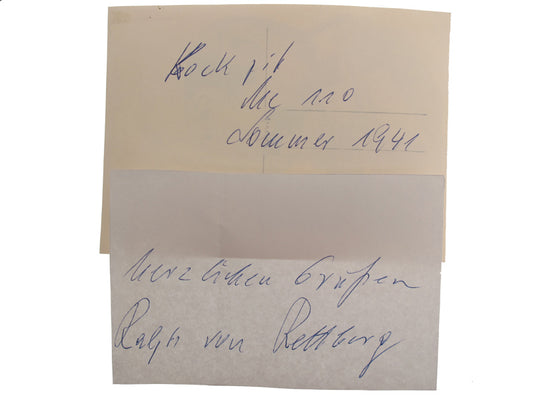 Kockpit
Me 110
Sommer 1941
herzlichen Grüßen
Ralph von Rettberg